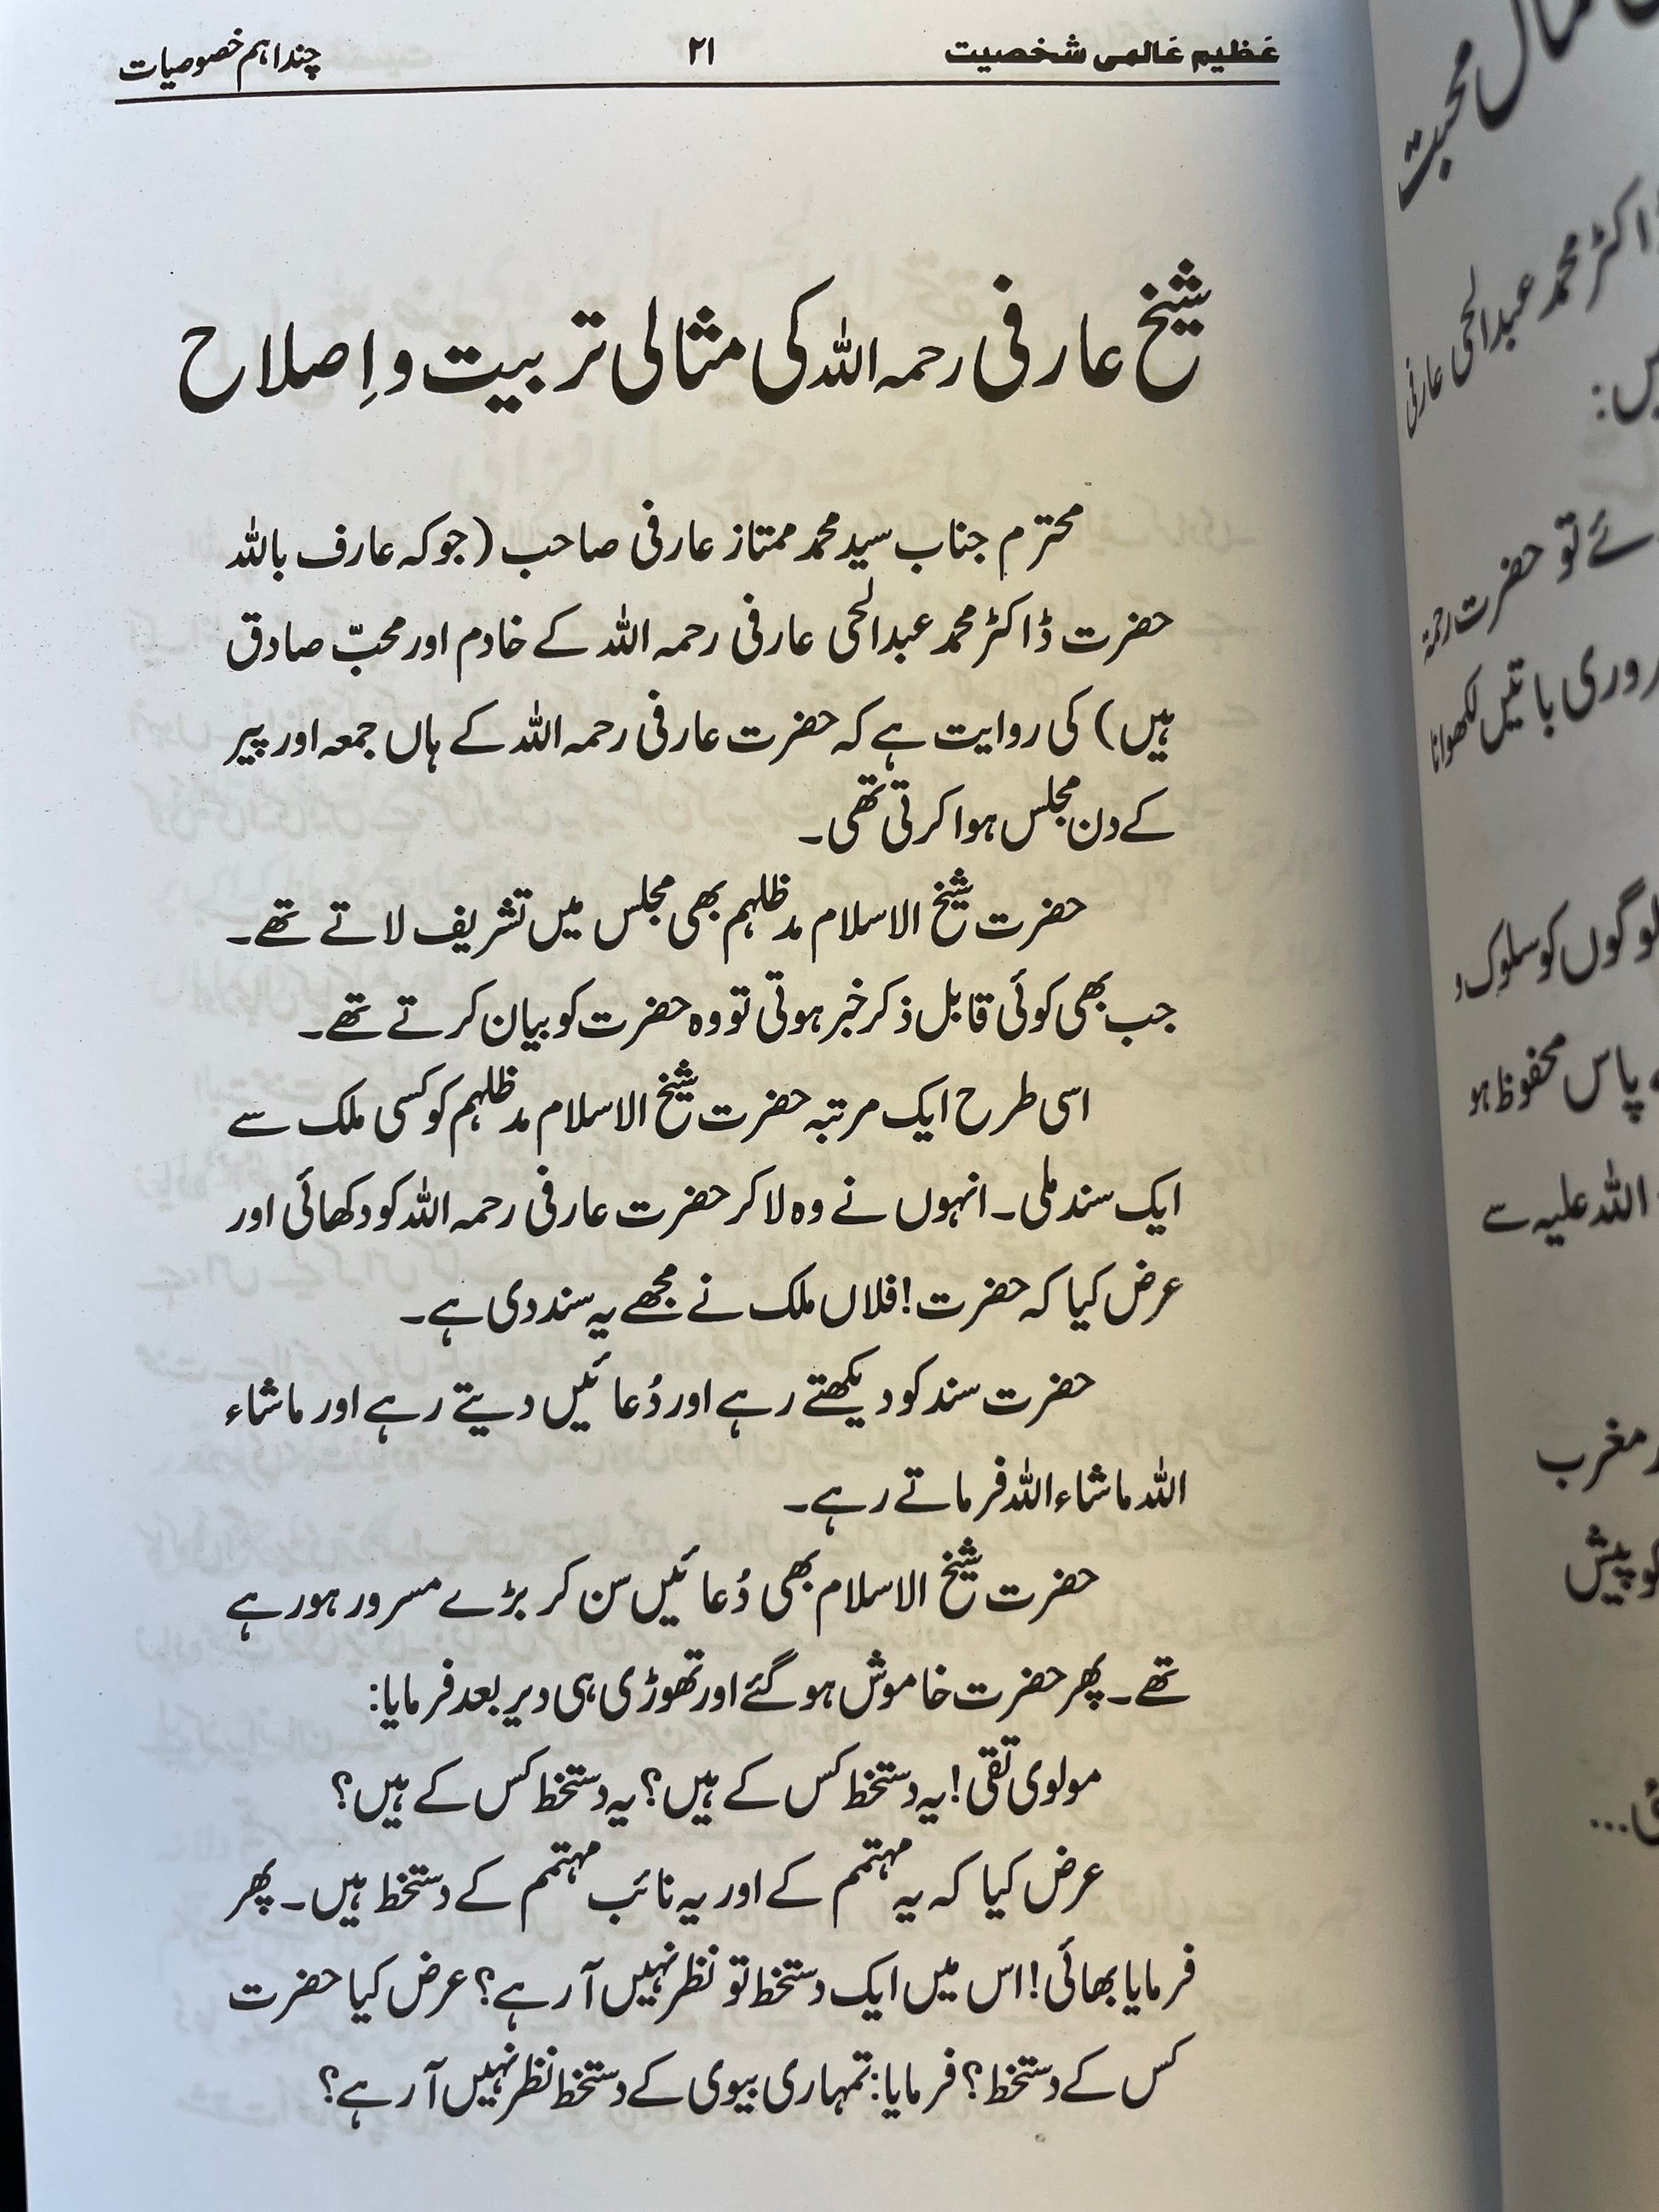 عظیم عالمی شخصیت ۲۱ چند اہم خصوصیات
شیخ عارفی رحمہ اللہ کی مثالی تربیت و اِصلاح
محترم جناب سید محمد ممتاز عارفی صاحب (جو کہ عارف باللہ
حضرت ڈاکٹر محمد عبدالحی عارفی رحمہ اللہ کے خادم اور محبّ صادق
ہیں) کی روایت ہے کہ حضرت عارفی رحمہ اللہ کے ہاں جمعہ اور پیر
کے دن مجلس ہوا کرتی تھی۔
حضرت شیخ الاسلام مدظلہم بھی مجلس میں تشریف لاتے تھے۔
جب بھی کوئی قابل ذکر خبر ہوتی تو وہ حضرت کو بیان کرتے تھے۔
اسی طرح ایک مرتبہ حضرت شیخ الاسلام مدظلہم کو کسی ملک سے
ایک سند ملی۔ انہوں نے وہ لا کر حضرت عارفی رحمہ اللہ کو دکھائی اور
عرض کیا کہ حضرت! فلاں ملک نے مجھے یہ سند دی ہے۔
حضرت سند کو دیکھتے رہے اور دُعائیں دیتے رہے اور ماشاء
اللہ ماشاء اللہ فرماتے رہے۔
حضرت شیخ الاسلام بھی دُعائیں سن کر بڑے مسرور ہو رہے
تھے۔ پھر حضرت خاموش ہو گئے اور تھوڑی ہی دیر بعد فرمایا:
مولوی تقی! یہ دستخط کس کے ہیں؟ یہ دستخط کس کے ہیں؟
عرض کیا کہ یہ مہتمم کے اور یہ نائب مہتمم کے دستخط ہیں۔ پھر
فرمایا بھائی! اس میں ایک دستخط تو نظر نہیں آ رہے؟ عرض کیا حضرت
کس کے دستخط؟ فرمایا: تمہاری بیوی کے دستخط نظر نہیں آ رہے؟
محبت
ڈاکٹر محمد عبدالحی عارفی
ئے تو حضرت رحمۃ
روری باتیں لکھوانا
لوگوں کو سلوک و
پاس محفوظ ہو
اللہ علیہ سے
مغرب
کو پیش